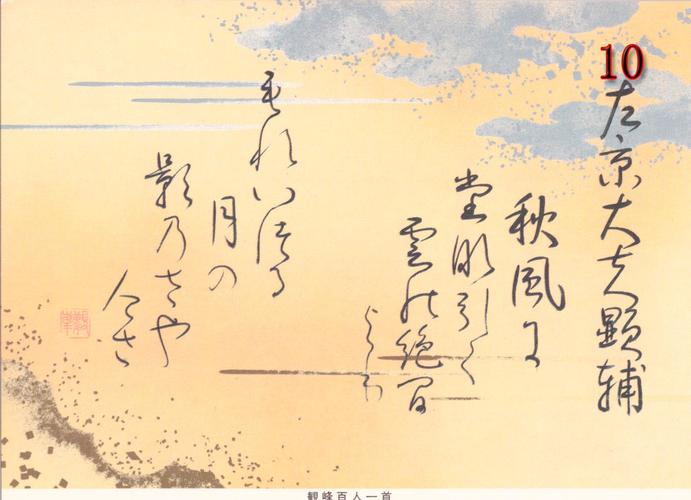 10
左京大夫顕輔
秋風に
堂那引く
雲能絶間
より
もれいづる
月の
影乃さや
介さ
観峰百人一首